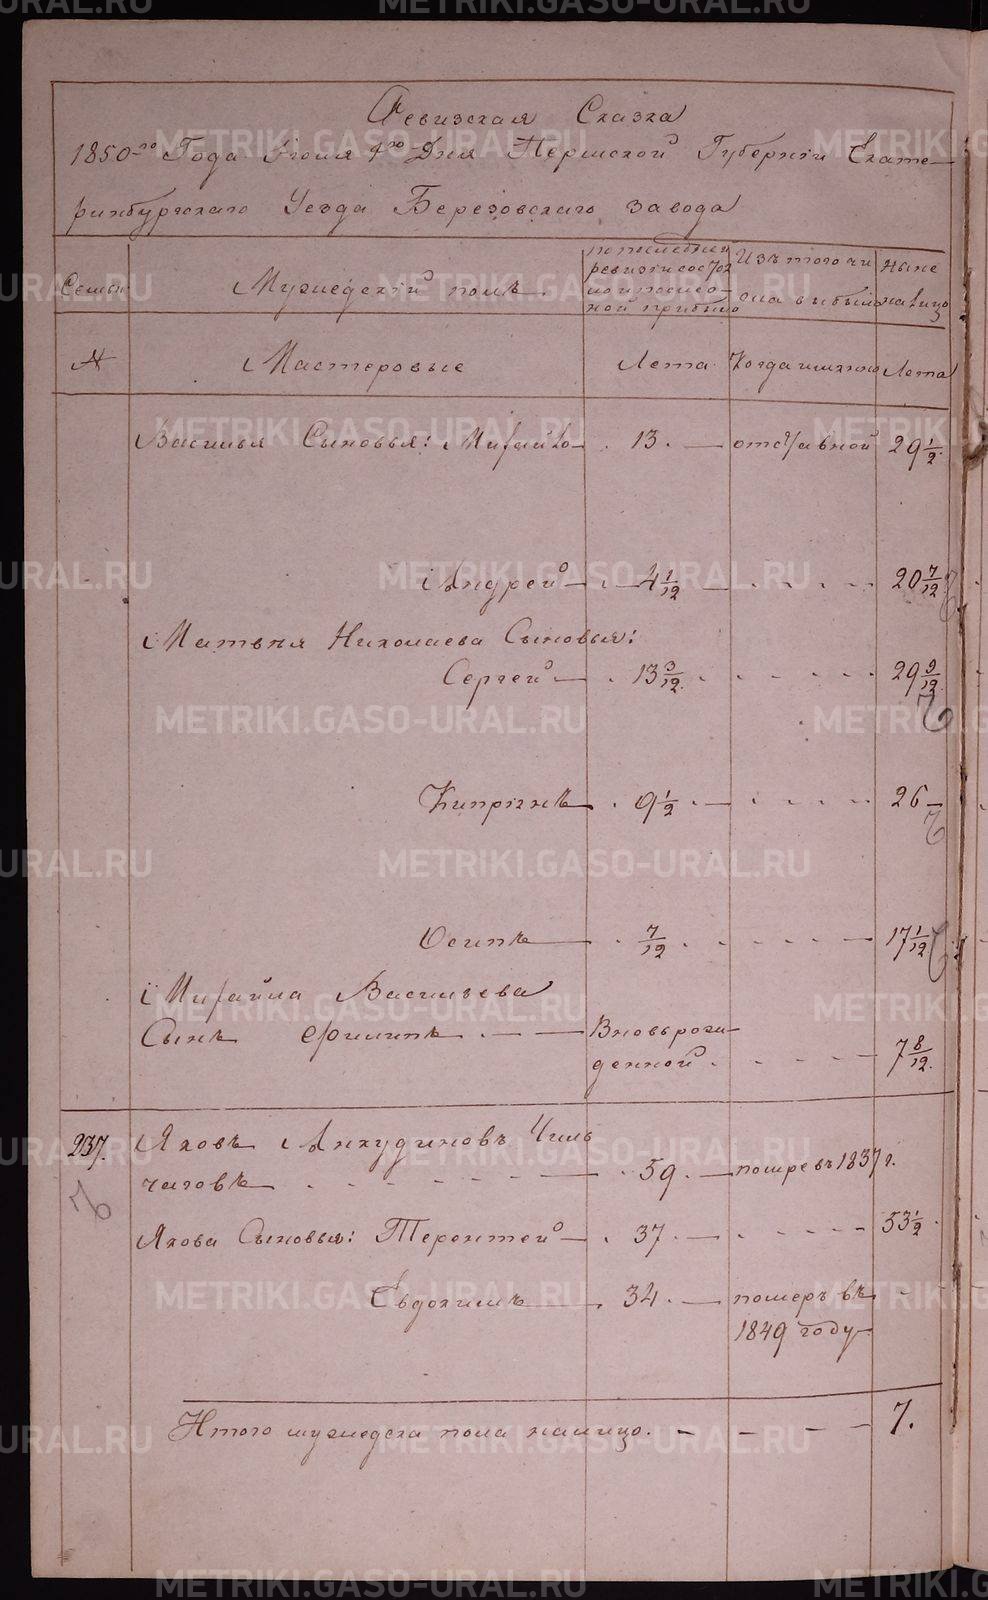 Ревизская Сказка
1850-го Года Июля 4го Дня Пермской Губернiи Екате-
ринбургскаго Уезда Березовскаго завода
Семьи
Мужедескiй полъ
по последней ревизiи состоя-
ло и после о-
ной прибыло
Изъ того чи
сла выбыло
Ныне
налицо
№
Мастеровые
Лета
Когда именно
Лета
Василья Сыновья: Михайло 13. отставной 29 1/2
Андрей 4 1/12 20 7/12
Матвея Николаева Сыновья:
Сергей 13 3/12 29 9/12
Кипрiянъ 9 1/2 26
Осипъ 7/12 17 1/12
Михайла Васильева
Сынъ Филипъ Вновьрож-
денной 7 8/12
237. Яковъ Анкудиновъ Чиль
чаговъ 59 помре въ 1837 г.
Якова Сыновья: Терентей 37 53 1/2
Евдокимъ 34 померъ въ -
1849 году
Итого мужедеска пола налицо. 7.
METRIKI.GASO-URAL.RU